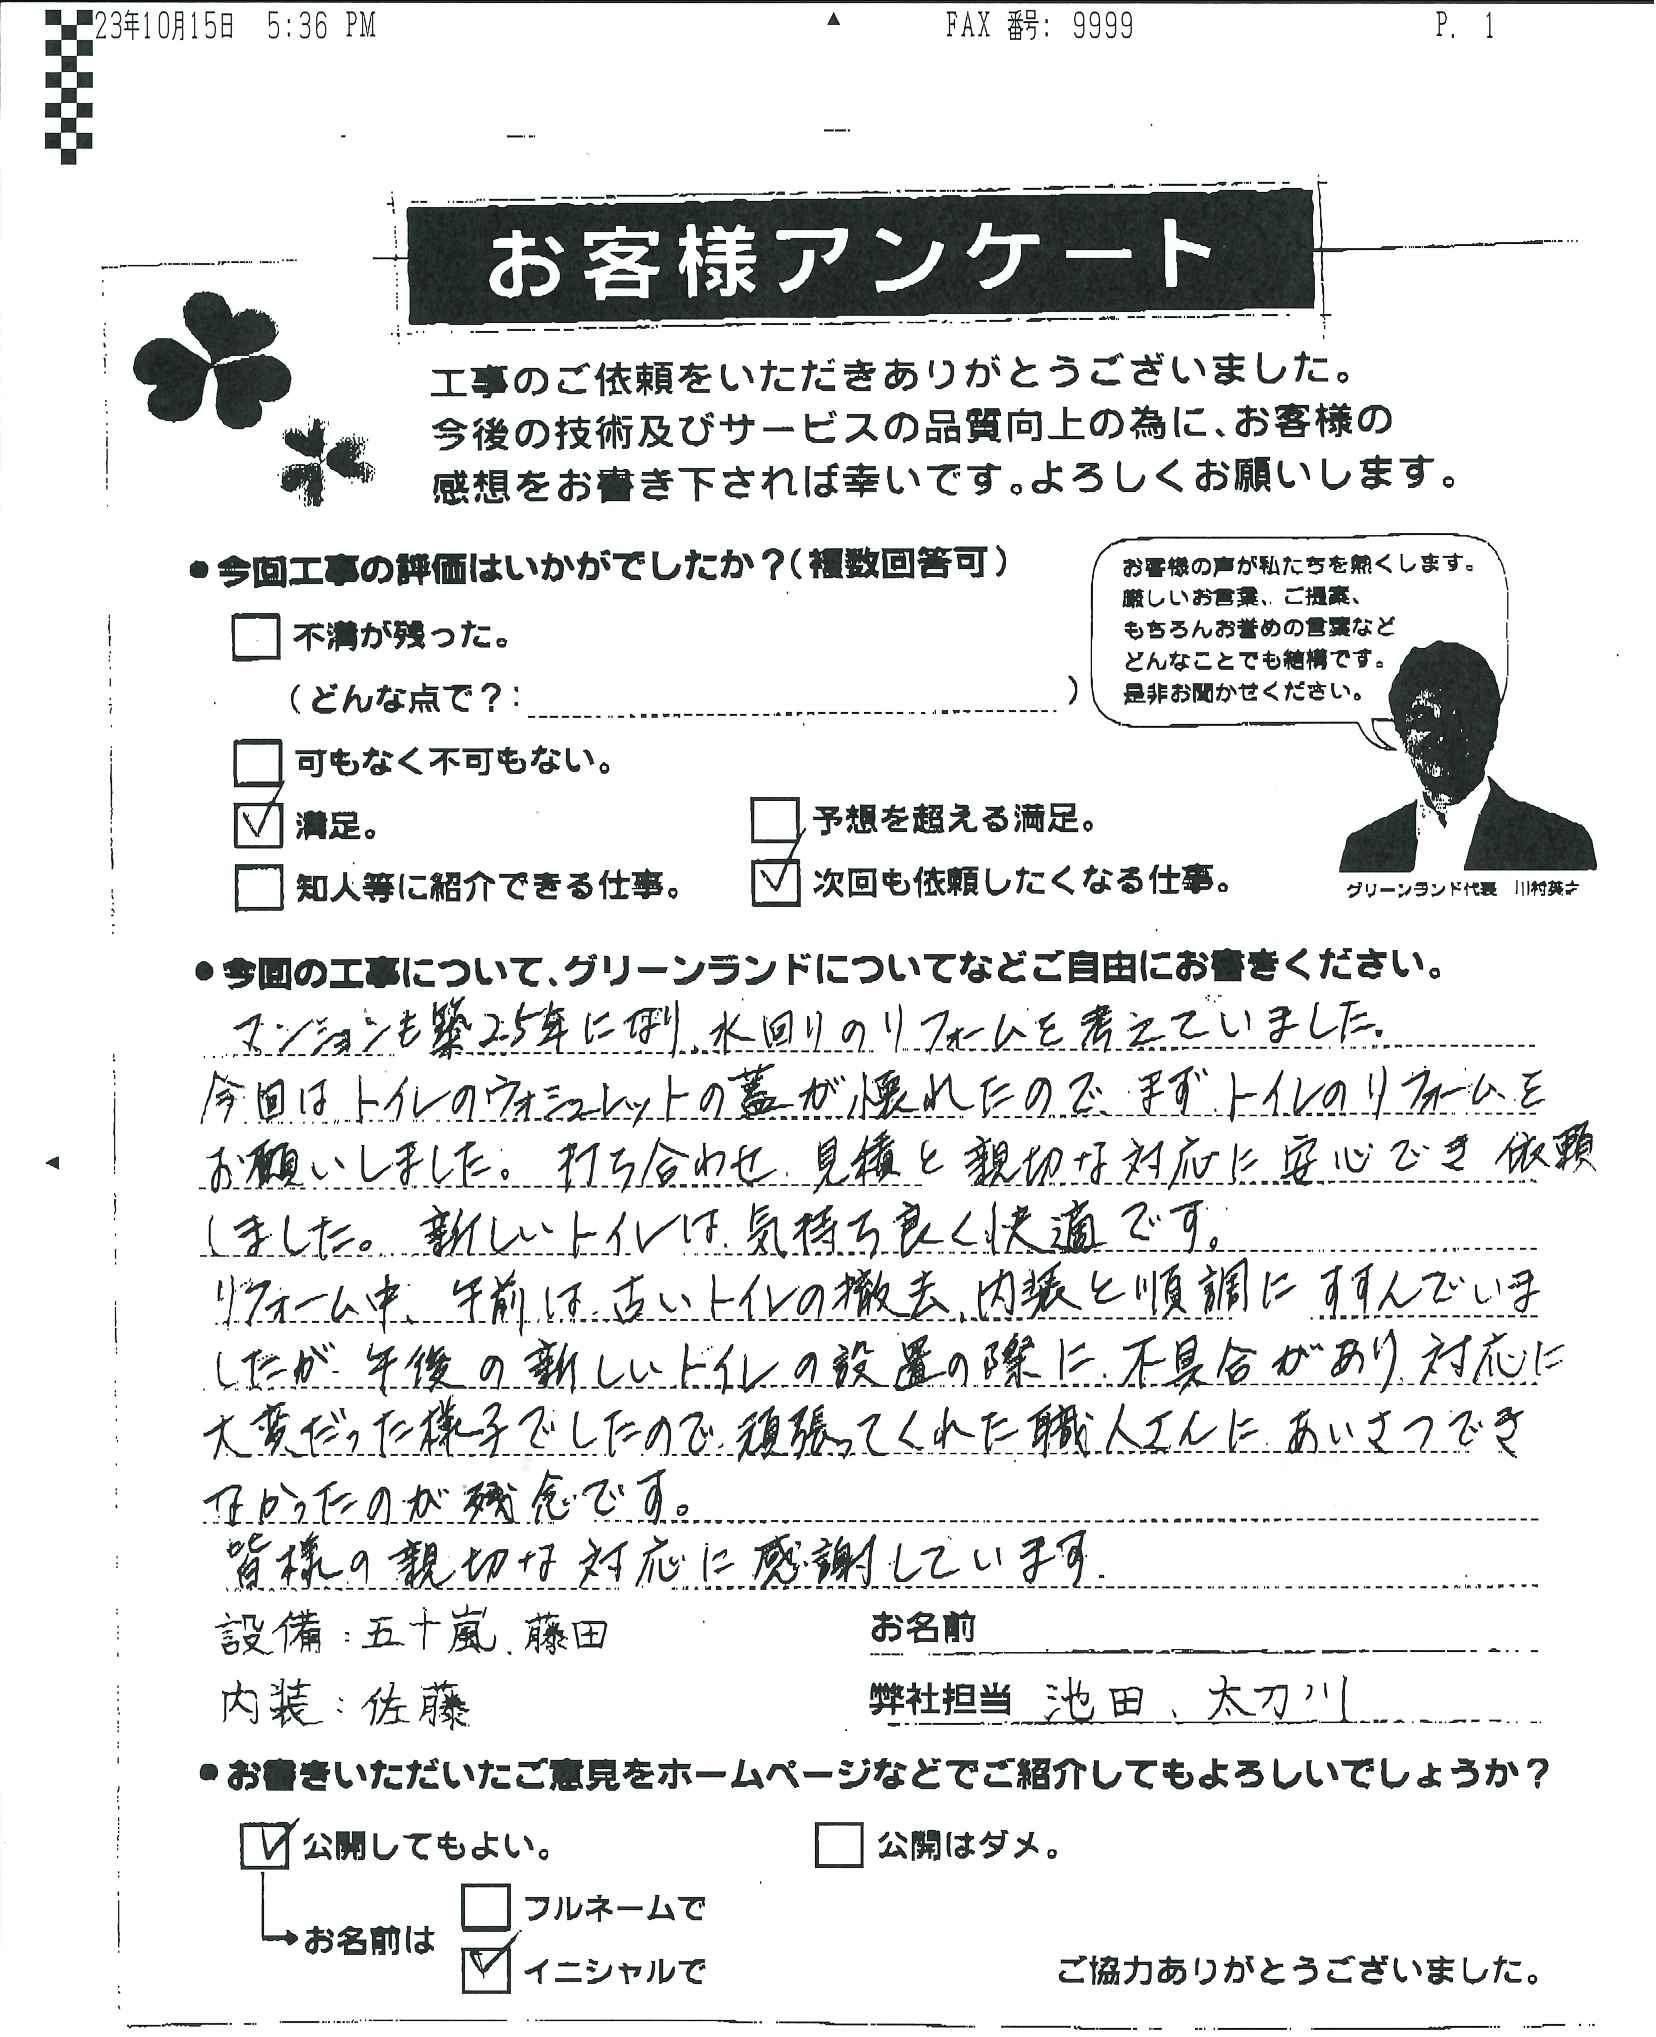 23年10月15日 5:36 PM FAX 番号: 9999 P. 1
お客様アンケート
工事のご依頼をいただきありがとうございました。
今後の技術及びサービスの品質向上の為に、お客様の
感想をお書き下されれば幸いです。よろしくお願いします。
●今回工事の評価はいかがでしたか？（複数回答可）
不満が残った。
（どんな点で？： ）
可もなく不可もない。
満足。
予想を超える満足。
知人等に紹介できる仕事。
次回も依頼したくなる仕事。
お客様の声が私たちを熱くします。
厳しいお言葉、ご提案、
もちろんお誉めの言葉など
どんなことでも結構です。
是非お聞かせください。
グリーンランド代表 川村英之
●今回の工事について、グリーンランドについてなどご自由にお書きください。
マンションも築25年になり、水回りのリフォームを考えていました。
今回はトイレのウォシュレットの蓋が壊れたので、まず、トイレのリフォームを
お願いしました。打ち合わせ、見積と親切な対応に安心でき依頼
しました。新しいトイレは、気持ち良く快適です。
リフォーム中、午前は、古いトイレの撤去、内装と順調にすすんでいま
したが、午後の新しいトイレの設置の際に、不具合があり、対応に
大変だった様子でしたので、頑張ってくれた職人さんに、あいさつでき
なかったのが残念です。
皆様の親切な対応に感謝しています。
設備：五十嵐、藤田
お名前
内装：佐藤
弊社担当 池田、太刀川
●お書きいただいたご意見をホームページなどでご紹介してもよろしいでしょうか？
公開してもよい。
公開はダメ。
お名前は
フルネームで
イニシャルで
ご協力ありがとうございました。